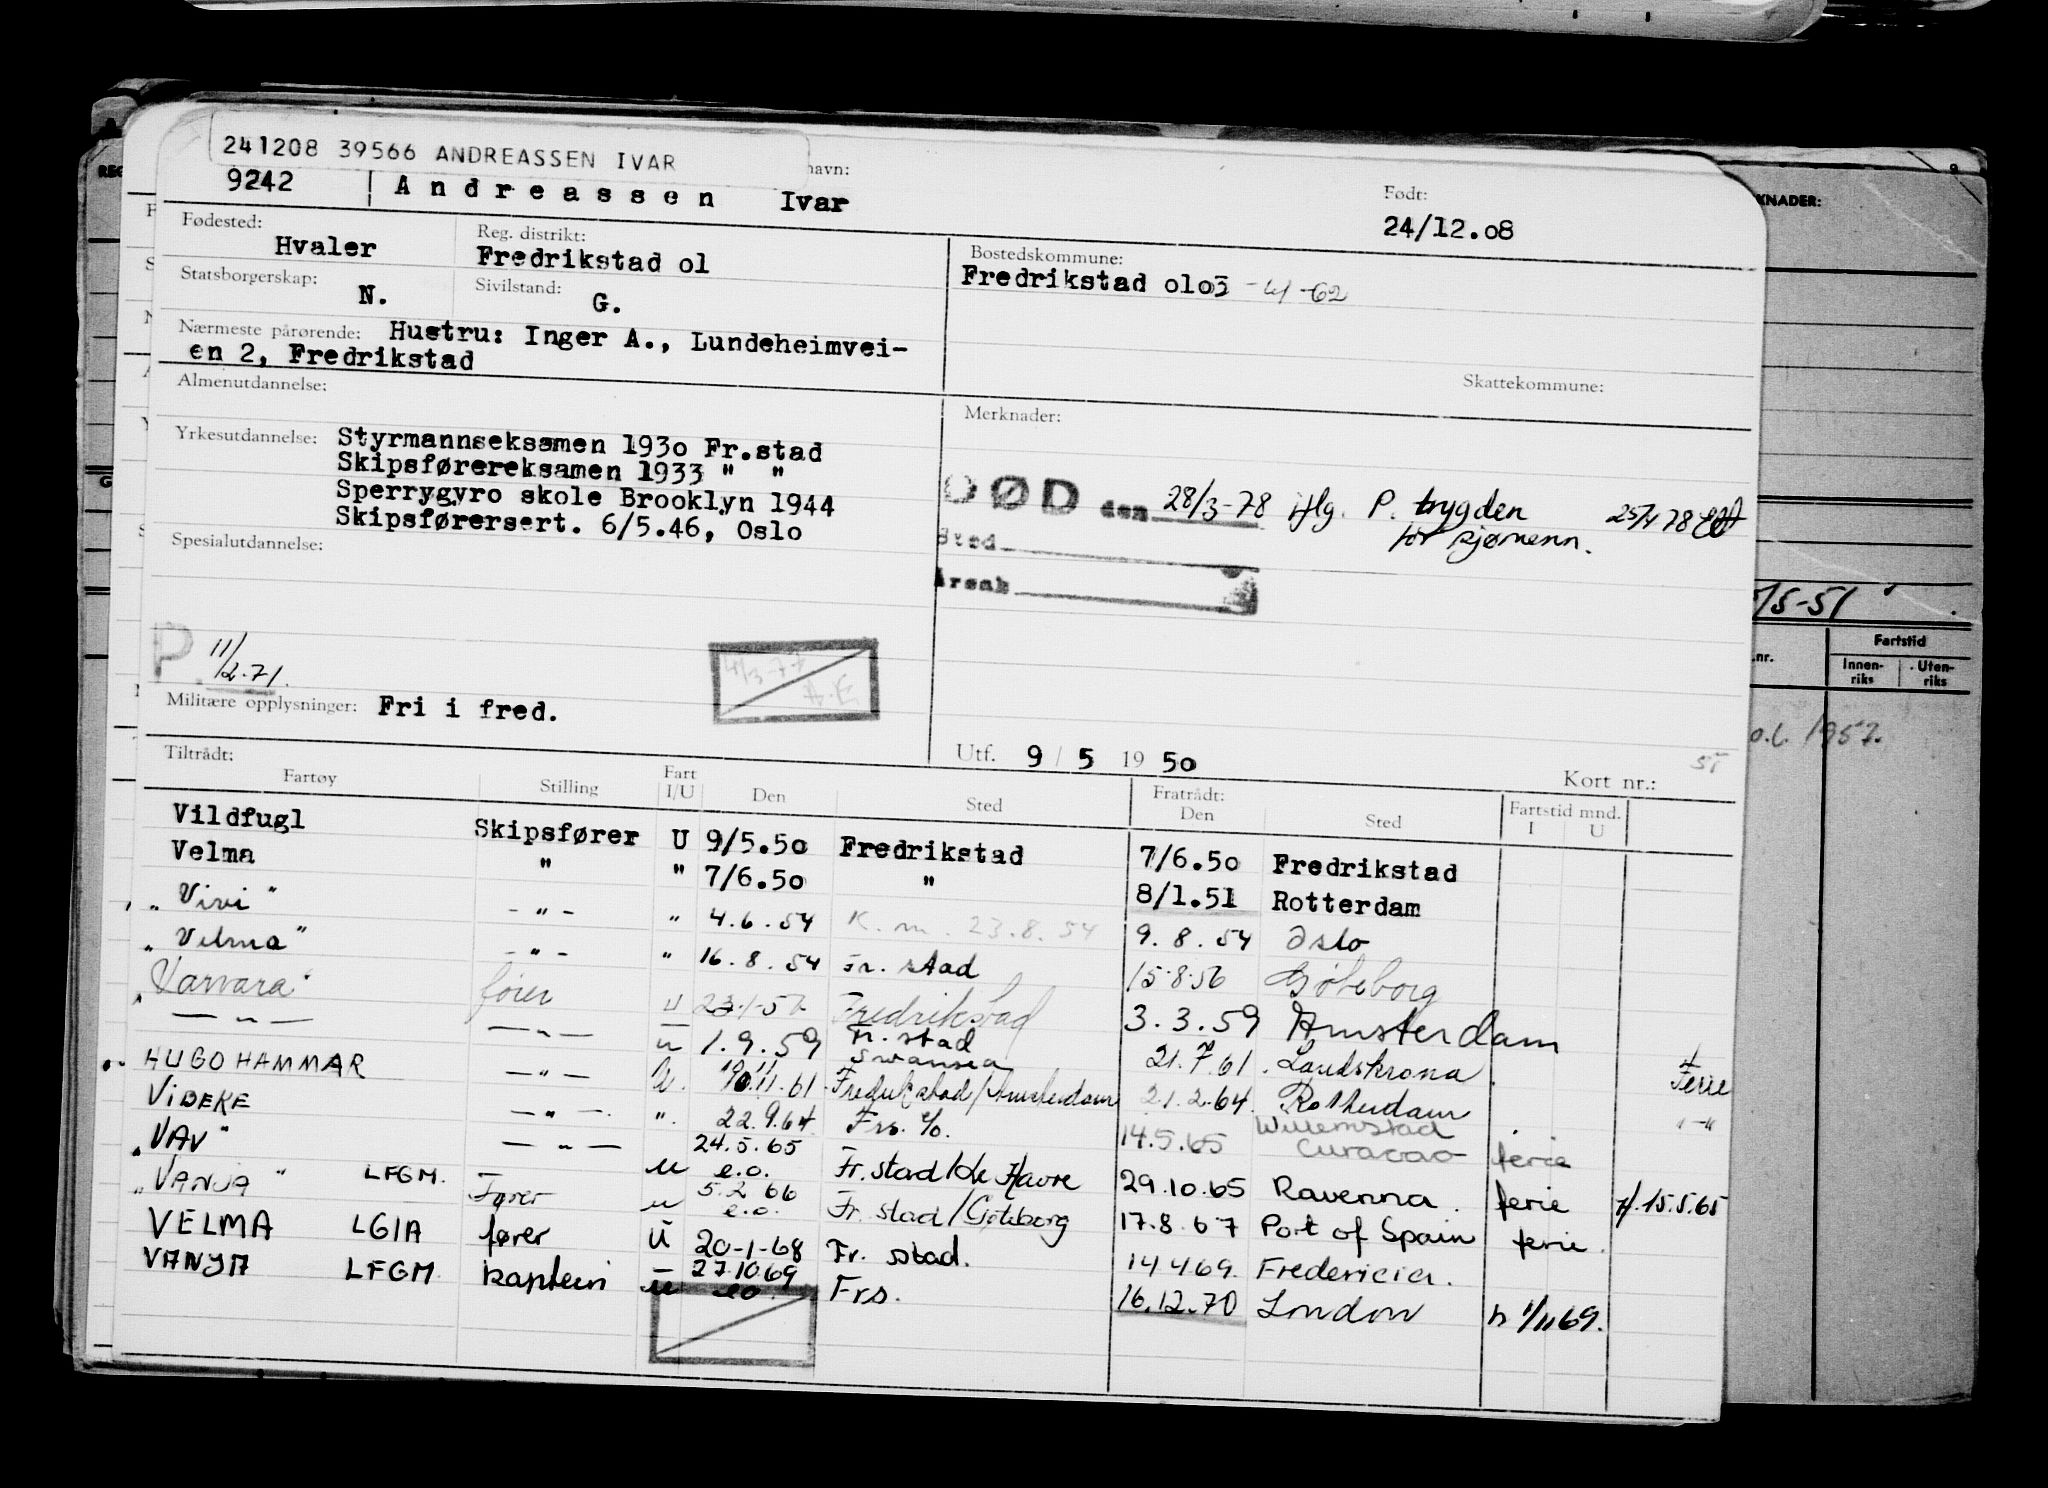 241208 39566 ANDREASSEN IVAR
9242 Andreassen Ivar
navn:
Født:
24/12.08
Fødested:
Hvaler
Reg. distrikt:
Fredrikstad ol
Bostedskommune:
Fredrikstad olo3
Statsborgerskap:
N.
Sivilstand:
G.
Nærmeste pårørende: Hustru: Inger A., Lundeheimvei-
en 2, Fredrikstad
Almenutdannelse:
Skattekommune:
Merknader:
Yrkesutdannelse: Styrmannseksamen 1930 Fr.stad
Skipsførereksamen 1933 " "
Sperrygyro skole Brooklyn 1944
Skipsførersert. 6/5.46, Oslo
DØD den 28/3-78 iflg. P. trygden
for sjømenn.
Sted
Årsak
Spesialutdannelse:
P. 11/12.71.
Militære opplysninger: Fri i fred.
Utf. 9 / 5 19 50
Kort nr.:
Tiltrådt:
Fartøy Stilling Fart I/U Den Sted Fratrådt: Den Sted Fartstid mnd. I U
Vildfugl Skipsfører U 9/5.50 Fredrikstad 7/6.50 Fredrikstad
Velma " " 7/6.50 " 8/1.51 Rotterdam
"Vivi" - " - " 4.6.54 K.m. 23.8.54 9.8.54 Oslo
"Velma" - " - " 16.8.54 Fr.stad 15.8.56 Göteborg
"Varvara" fører U Fredrikstad 3.3.59 Amsterdam
— " — — " — u 1.9.59 Fr.stad Swansea 21.7.61 Landskrona Ferie
HUGO HAMMAR — " — U. 10.11.61 Fredrikstad/Amsterdam 21.2.64. Rotterdam
VIBEKE — " — ". 22.9.64 Frs. 14.5.65 Willemstad Curacao ferie
"VAV" LFGM. — " — u 24.5.65 e.o. Fr.stad/Le Havre 29.10.65 Ravenna. ferie 15.5.65
"VANJA" Fører u 5.2 66 e.o. Fr.stad/Göteborg 17.8.67 Port of Spain ferie.
VELMA LGIA fører U 20-1-68 Fr.stad. 14 4 69. Fredericia.
VANYA LFGM kaptein u 27.10 69 eo. Frs. 16.12.70 London 1/11 69.
KNADER:
/5-51
nr.
Fartstid
Innen-
riks
Uten-
riks
1957.